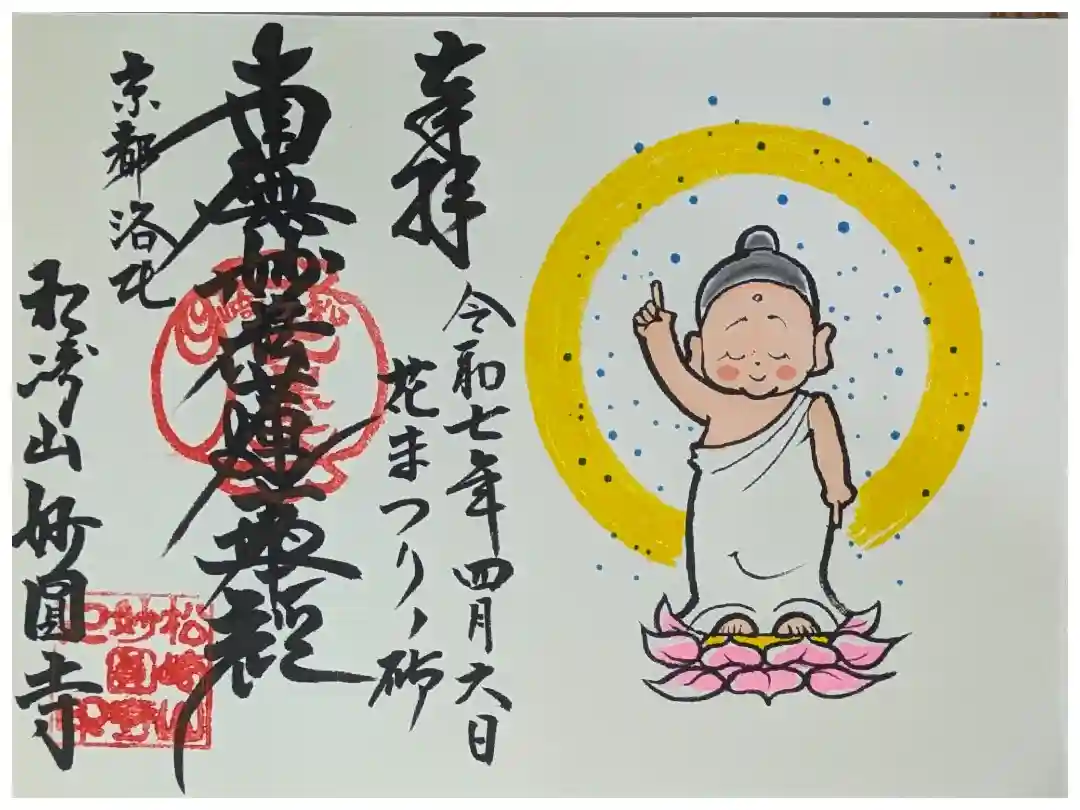 奉拝
令和七年四月六日
花まつりノ砌
南無妙法蓮華経
京都洛北
松崎山妙圓寺
松崎山
妙圓寺